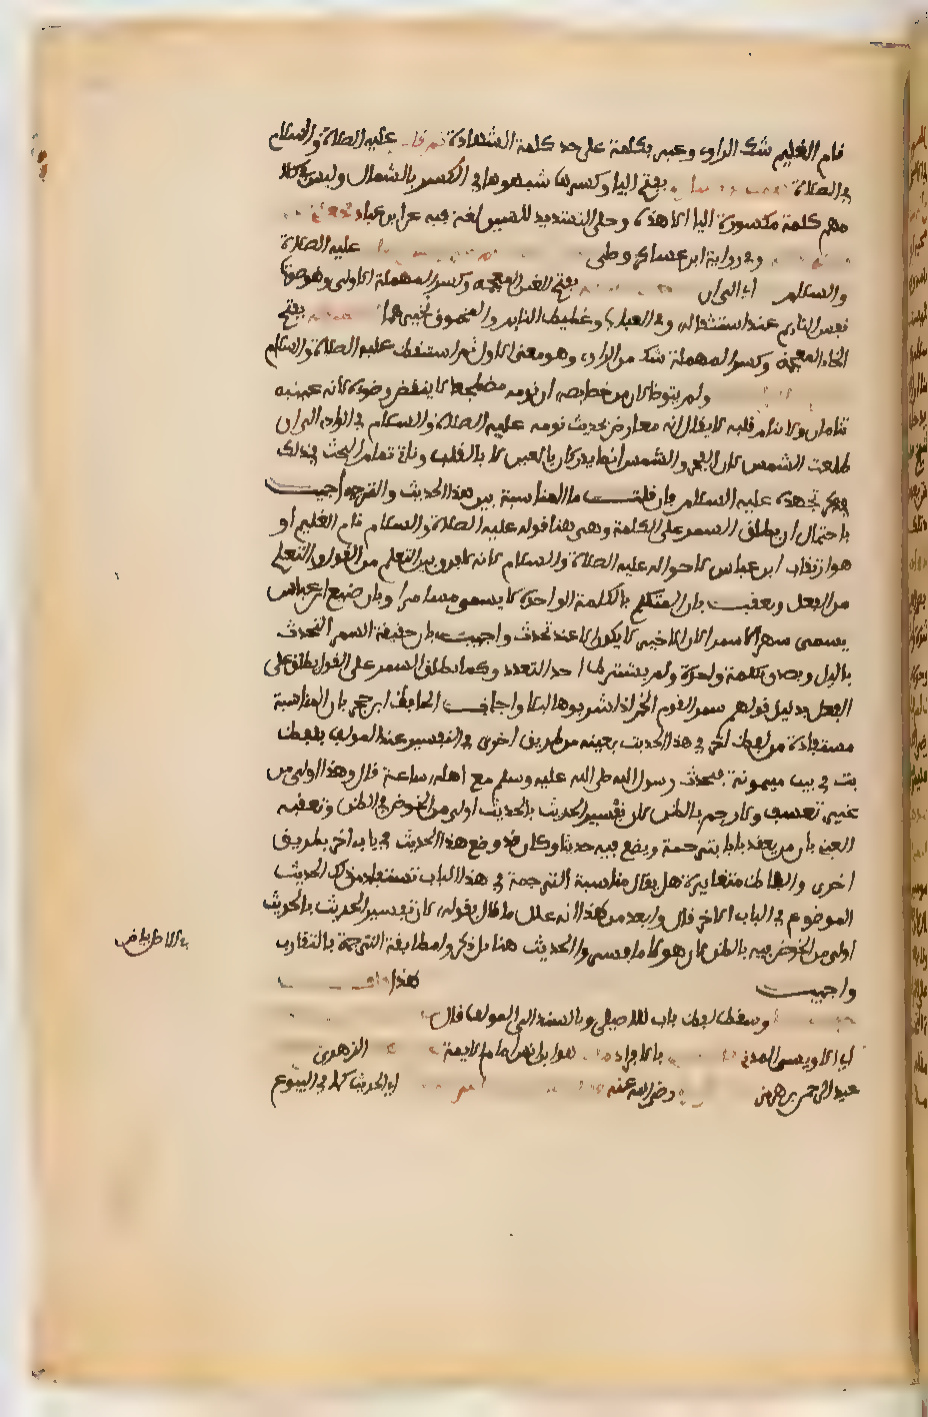 نام الغليم شك الراوي وعبر بكلمة على حد كلمة الشهادة ثم قا عليه الصلاة والسلام
في الصلاة بفتح اليا وكسرها شبهوها في الكسر بالشمال وليس في كلا
مهم كلمة مكسورة اليا الا هذه وحكى التشديد للسين لغة فيه عن ابن عباد
وفي رواية ابن عساكر وصلى عليه الصلاة
والسلام اي الى ان بفتح الغين المعجمة وكسر المهملة الاولى وهو صوت
نفس النائم عند استثقاله وفي العباب وغطيط النائم والمخنوق نخيرهما بفتح
الخاء المعجمة وكسر المهملة شك من الراوي وهو بمعنى الاول ثم استيقظ عليه الصلاة والسلام
ولم يتوضا لان من خصايصه ان نومه مضطجعا لا ينقض وضوءه لانه عينيه
تنامان ولا ينام قلبه لا يقال انه معارض بحديث نومه عليه الصلاة والسلام في الوادي الى ان
طلعت الشمس لان الفجر والشمس انما يدركان بالعين لا بالقلب وياتي تمام البحث في ذلك
في ذكر تهجده عليه السلام فان قلت ما المناسبة بين هذا الحديث والترجمة اجيب
باحتمال ان يطلق السمر على الكلمة وهي هنا قوله عليه الصلاة والسلام نام الغليم او
هو ارتقاب ابن عباس لاحواله عليه الصلاة والسلام لانه لا فرق بين التعلم من القول والتعلم
من الفعل وتعقب بان المتكلم بالكلمة الواحدة لا يسمى مسامرا وبان صنيع ابن عباس
يسمى سهرا لا سمرا لان الاخير لا يكون الا عند تحدث واجيب بان حقيقة السمر التحدث
بالليل ويصدق بكلمة واحدة ولم يشترط احد التعدد وكما يطلق السمر على القول يطلق على
الفعل بدليل قولهم سمر القوم الخمر اذا شربوها ليلا واجاب الحافظ ابن حجر بان المناسبة
مستفادة من لفظ اخر في هذا الحديث بعينه من طريق اخرى في التفسير عند المولف بلفظ
بت في بيت ميمونة فتحدث رسول الله صلى الله عليه وسلم مع اهله ساعة قال وهذا اولى من
غير تعسف ولا رجم بالظن لان تفسير الحديث بالحديث اولى من الخوض في الظن وتعقبه
العيني بان من يعقد بابا بترجمة ويضع فيه حديثا وكان قد وضع هذا الحديث في باب اخر بطريق
اخرى والفاظ متغايرة هل يقال مناسبة الترجمة في هذا الباب تستفاد من ذلك الحديث
الموضوع في الباب الاخر قال وابعد من هذا انه علل ما قال بقوله لان تفسير الحديث بالحديث
اولى من الخوض فيه بالظن لان هولا ما فسروا الحديث هنا بل ذكروا مطابقة الترجمة بالتقارب
واجيب هذا
وسقط لفظ باب للاصيلي وبالسند الى المولف قال
اي الاويسي المدني بالافراد هو ابن انس امام الايمة الزهري
عبد الرحمن بن هرمز رضي الله عنه اي الحديث كما في البيوع